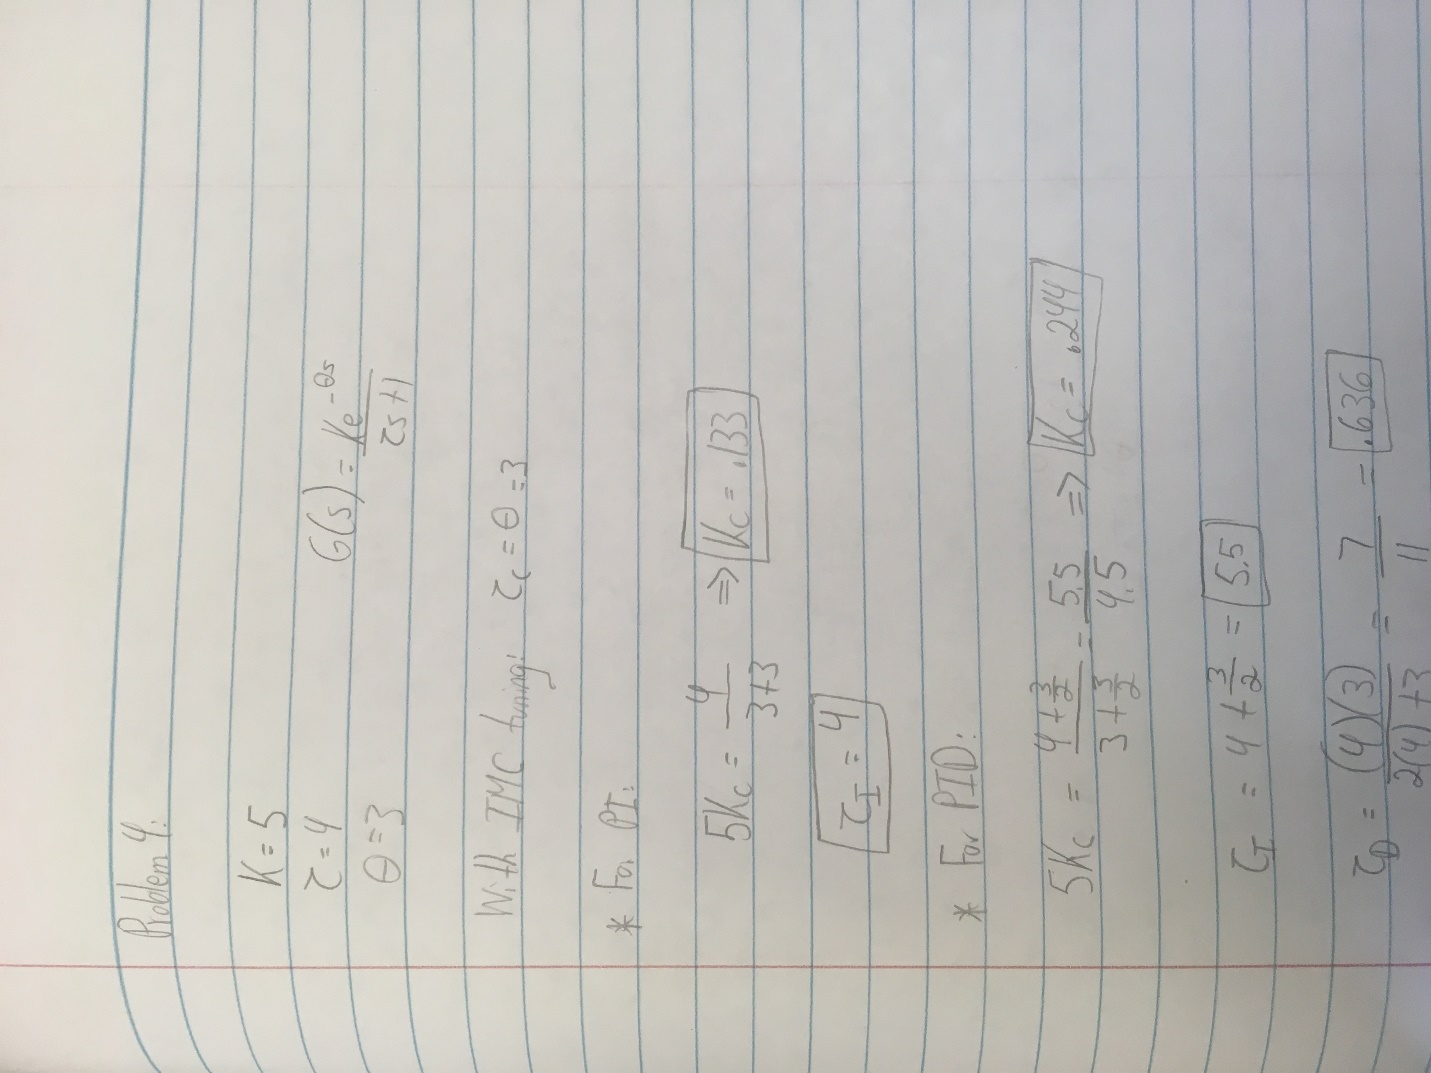 Problem 4:
K = 5
τ = 4
G(s) = Ke^-θs / τs+1
θ = 3
With IMC tuning: τc = θ = 3
* For PI:
5Kc = 4 / 3+3 => Kc = .133
τI = 4
* For PID:
5Kc = 4+3/2 / 3+3/2 = 5.5 / 4.5 => Kc = .244
τI = 4 + 3/2 = 5.5
τD = (4)(3) / 2(4)+3 = 7 / 11 = .636